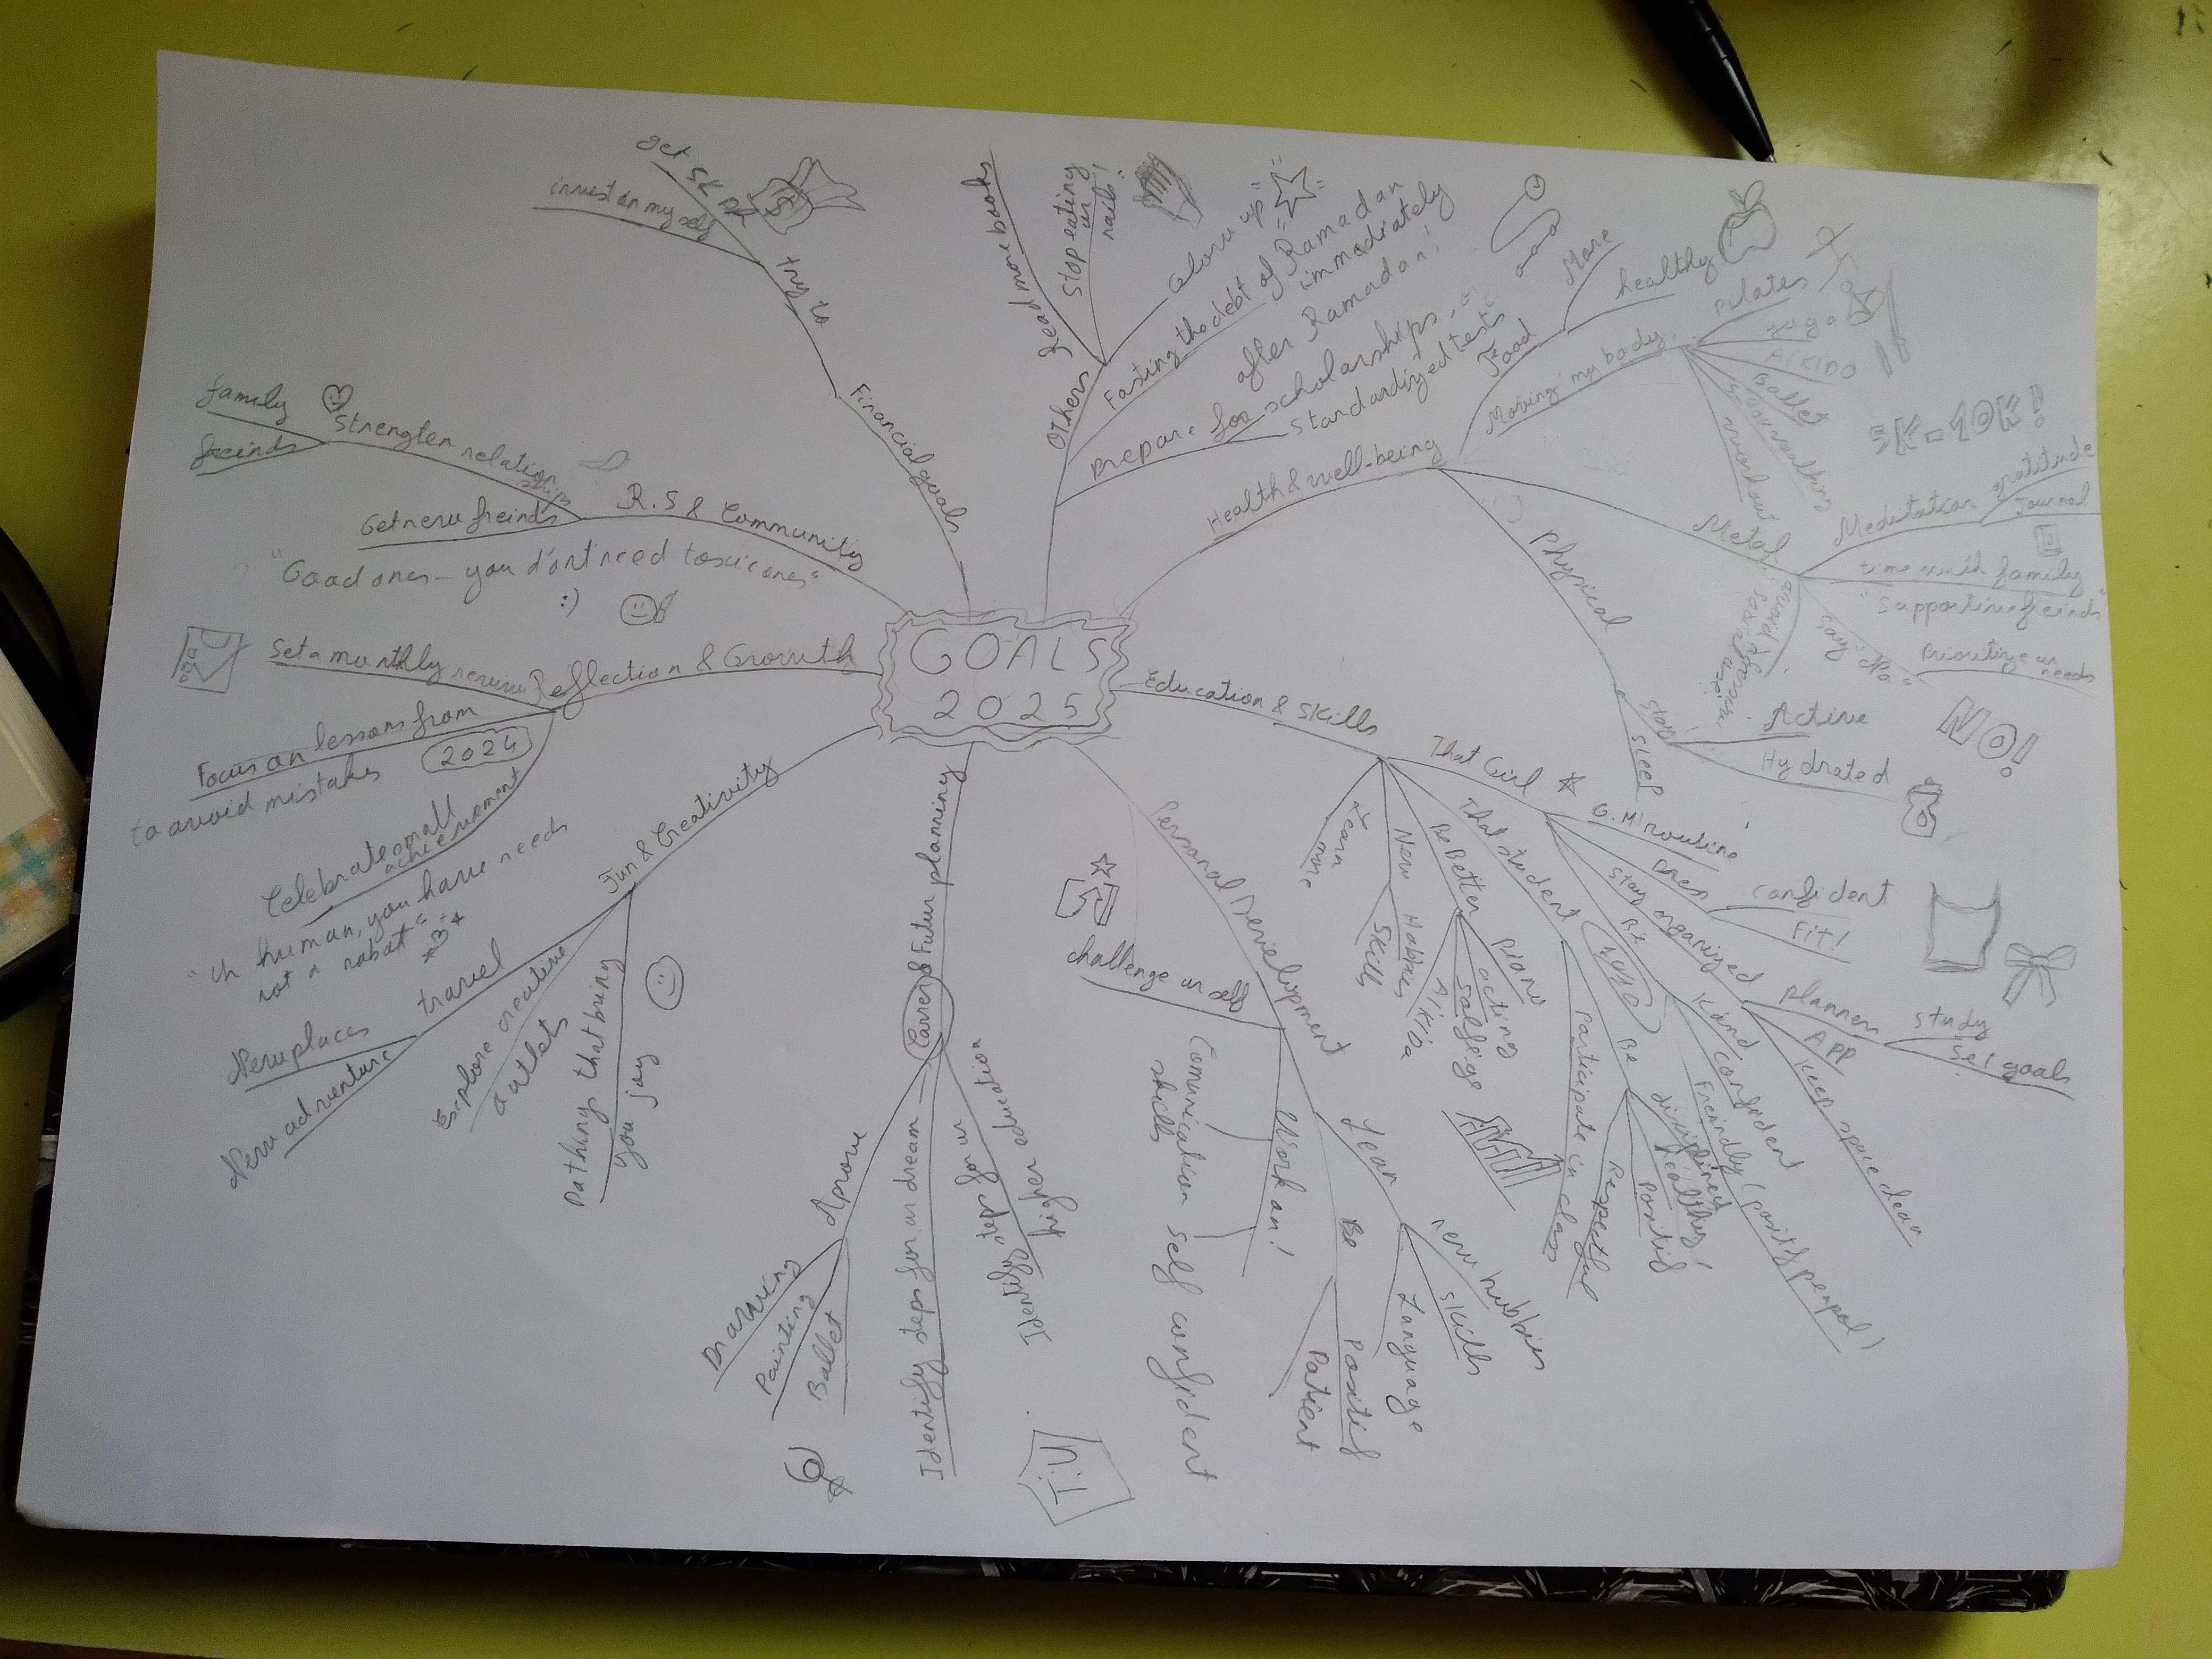 GOALS
2025
Financial goals
or try
get 5K DA
invest on my self
$
Others
Read more books
Stop eating
ur
nails!
Glow up
Fasting the debt of Ramadan
immediately
after Ramadan!
Prepare for scholarships
Standardized tests
Health & well-being
Food
More
healthy
Moving my body
Pilates
yoga
AIKIDO
Ballet
workout
5K-10K!
Metal
Meditation
gratitude
Journal
time with family
Supportive freinds
say "No"
Prioritize ur
needs
NO!
Physical
stay
Active
Hydrated
SLEEP
Education & Skills
That Girl
G.M routine
Dress
confident
Fit!
stay organized
planner
study
set goals
APP
Keep space clean
Be
Kind
Confident
Freindly (positif peapol)
That student
Be
disciplined
healthy!
Positif
Respectful
Participate in class
Be Better
Piano
acting
Solfége
New
Hobbies
Skills
Learn
more
Personal Development
challenge ur self
Work on!
Comunication
skills
self confident
Lean
new hubbies
skills
Language
Be
Positif
Patient
Career & Futur planning
Identify steps for ur
higher education
Identify steps for ur dream
Aprove
Drawing
Painting
Ballet
T.U
Fun & Creativity
travel
New places
New adventure
Explore creative
outlets
Do things that bring
you joy
Reflection & Growth
Set a monthly review
Focus on lessons from
2024
to avoid mistakes
Celebrate small
achievement
"Ur human, you have needs
not a robot"
R.S & Community
Strengten relation
ships
family
freinds
Get new freinds
"Good ones - you d'ont need toxic ones"
:)